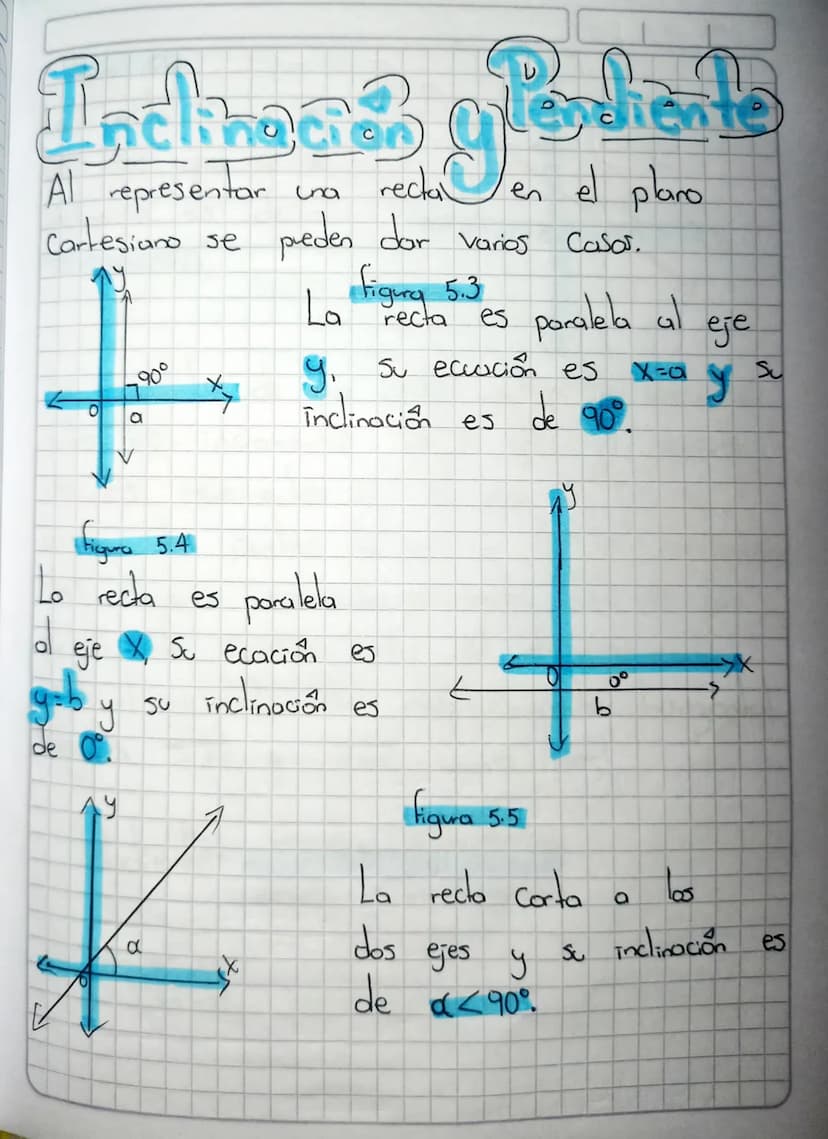 Inclinación y Pendiente
Al representar una recta en el plano
Cartesiano se pueden dar varios Casos.
y
90°
x
0
a
figura 5.3
La recta es paralela al eje
y, su ecuación es x=a y su
inclinación es de 90°.
figura 5.4
La recta es paralela
al eje X, su ecación es
y=b y su inclinación es
de 0°.
y
x
0
0°
b
y
α
x
0
figura 5.5
La recta corta a los
dos ejes y su inclinación es
de α<90°.